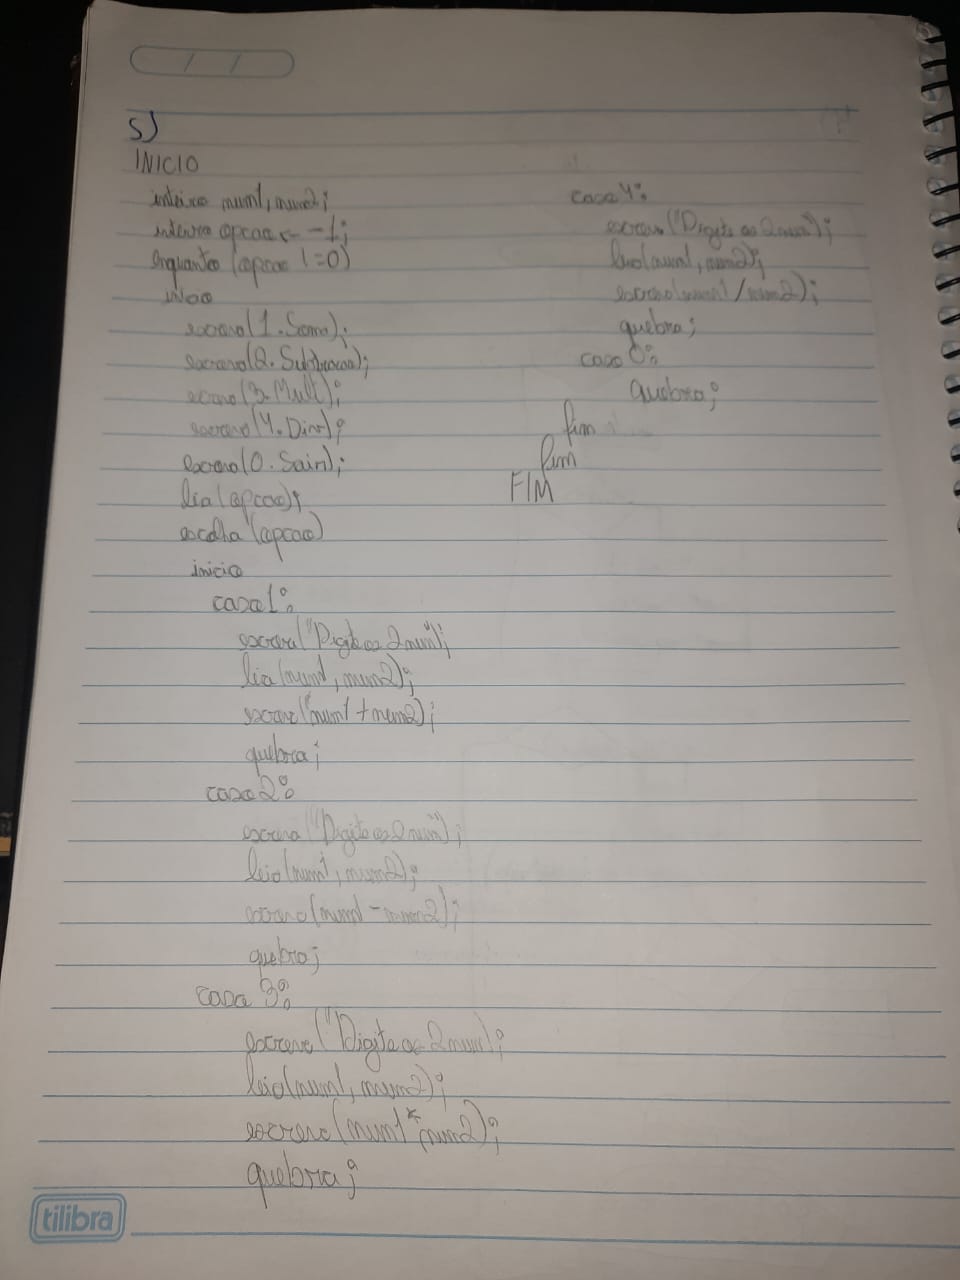 5)
INICIO
inteiro num1, num2;
inteiro opcao <- -1;
enquanto (opcao != 0)
inicio
escreva(1. Soma);
escreva(2. Subtracao);
escreva(3. Mult);
escreva(4. Div);
escreva(0. Sair);
leia(opcao);
escolha (opcao)
inicio
caso 1:
escreva("Digite os 2 num");
leia(num1, num2);
escreva(num1 + num2);
quebra;
caso 2:
escreva("Digite os 2 num");
leia(num1, num2);
escreva(num1 - num2);
quebra;
caso 3:
escreva("Digite os 2 num");
leia(num1, num2);
escreva(num1 * num2);
quebra;
caso 4:
escreva("Digite os 2 num");
leia(num1, num2);
escreva(num1 / num2);
quebra;
caso 0:
quebra;
fim
fim
FIM
tilibra